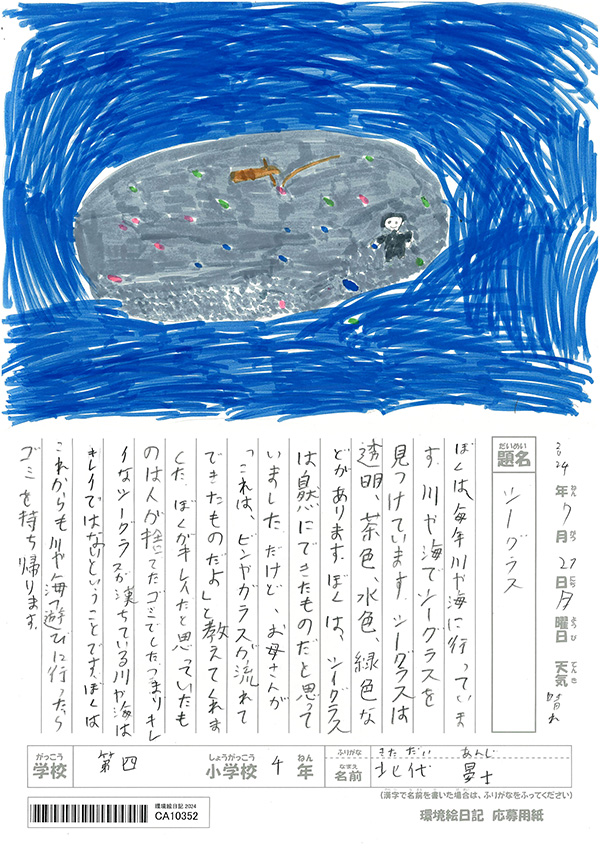 2024年7月27日月曜日 天気 晴れ
ねん がつ にち ようび てんき
だいめい
題名
シーグラス
ぼくは、毎年川や海に行っていま
す。川や海でシーグラスを
見つけています。シーグラスは
透明、茶色、水色、緑色な
どがあります。ぼくは、シイグラス
は自然にできたものだと思って
いました。だけど、お母さんが
「これは、ビンやガラスが流れて
できたものだよ」と教えてくれま
した。ぼくがキレイだと思っていたも
のは人が捨てたゴミでした。つまりキレ
イなシーグラスが落ちている川や海は
キレイではないということです。ぼくは
これからも川や海で遊びに行ったら
ゴミを持ち帰ります。
がっこう
学校
第四
しょうがっこう
小学校
4
ねん
年
ふりがな
きただい あんじ
なまえ
名前
北代
(漢字で名前を書いた場合は、ふりがなをふってください)
環境絵日記 2024
CA10352
環境絵日記 応募用紙